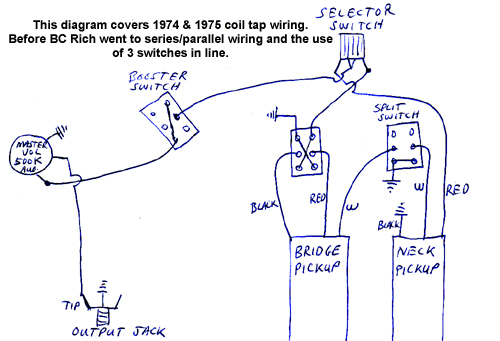 This diagram covers 1974 & 1975 coil tap wiring.
Before BC Rich went to series/parallel wiring and the use
of 3 switches in line.
SELECTOR
SWITCH
BOOSTER
SWITCH
SPLIT
SWITCH
MASTER
VOL
500K
AUD.
BLACK
RED
W
W
RED
BLACK
BRIDGE
PICKUP
NECK
PICKUP
TIP
OUTPUT JACK